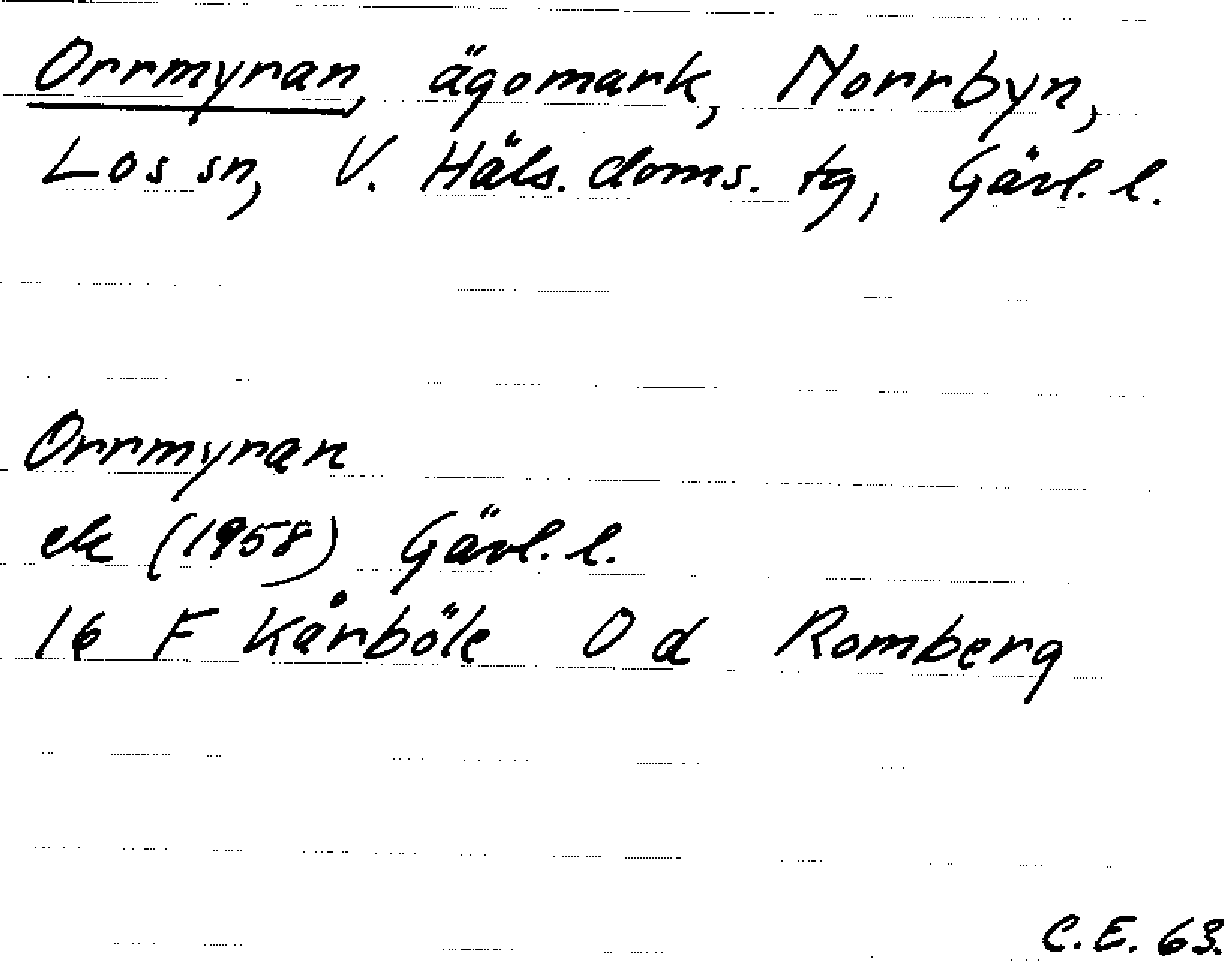 Orrmyran, ägomark, Norrbyn,
Los sn, V. Häls. doms. tg, Gävl. l.
Orrmyran
ek (1958) Gävl. l.
16 F Kårböle O d Romberg
C.E. 63.